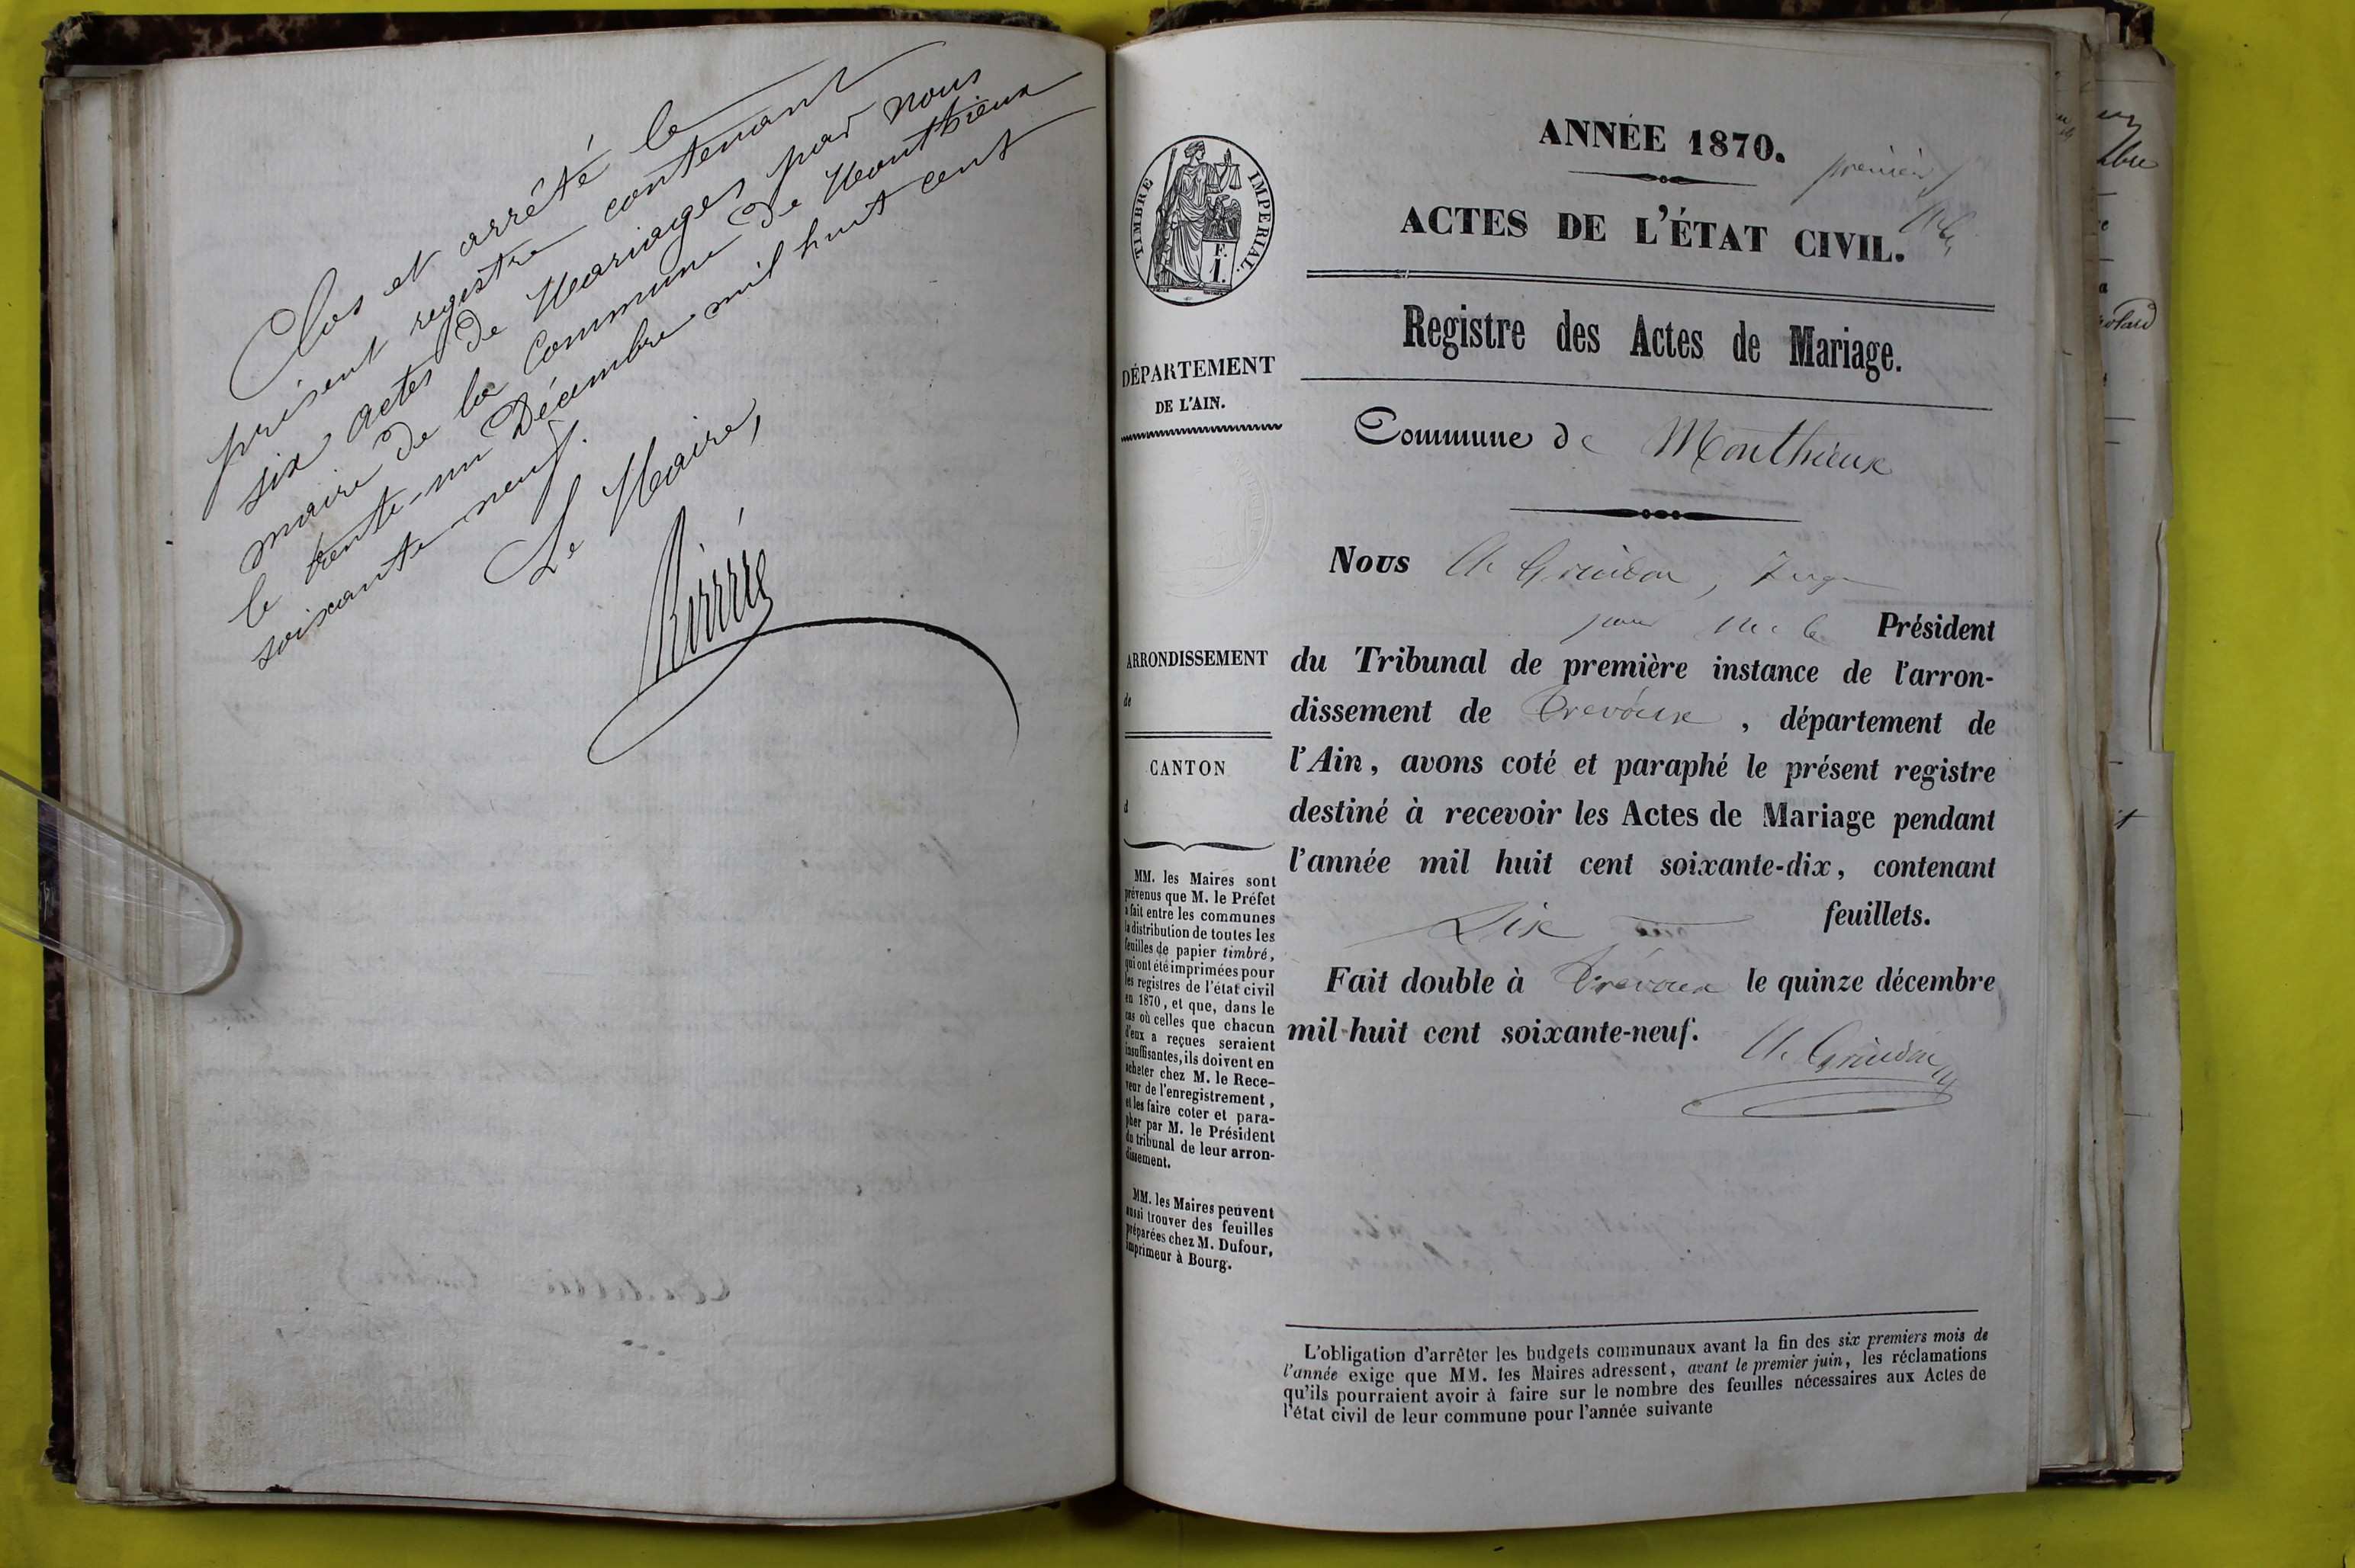 Clos et arrêté le
présent registre contenant
six actes de Mariages par nous
maire de la Commune de Monthieux
le trente-un Décembre mil huit cent
soixante-neuf.
Le Maire,
ANNÉE 1870.
premier
ACTES DE L'ÉTAT CIVIL.
TIMBRE IMPERIAL.
F.
1.
Registre des Actes de Mariage.
DÉPARTEMENT
DE L'AIN.
Commune de Monthieux
Nous Ch. Grindon, Juge
pour M. le Président
ARRONDISSEMENT
de
du Tribunal de première instance de l'arron-
dissement de Trévoux, département de
l'Ain, avons coté et paraphé le présent registre
destiné à recevoir les Actes de Mariage pendant
l'année mil huit cent soixante-dix, contenant
Six feuillets.
Fait double à Trévoux le quinze décembre
mil huit cent soixante-neuf.
Ch. Grindon
CANTON
d
MM. les Maires sont
prévenus que M. le Préfet
a fait entre les communes
la distribution de toutes les
feuilles de papier timbré,
qui ont été imprimées pour
les registres de l'état civil
en 1870, et que, dans le
cas où celles que chacun
d'eux a reçues seraient
insuffisantes, ils doivent en
acheter chez M. le Rece-
veur de l'enregistrement,
et les faire coter et para-
pher par M. le Président
du tribunal de leur arron-
dissement.
MM. les Maires peuvent
aussi trouver des feuilles
préparées chez M. Dufour,
imprimeur à Bourg.
L'obligation d'arrêter les budgets communaux avant la fin des six premiers mois de
l'année exige que MM. les Maires adressent, avant le premier juin, les réclamations
qu'ils pourraient avoir à faire sur le nombre des feuilles nécessaires aux Actes de
l'état civil de leur commune pour l'année suivante